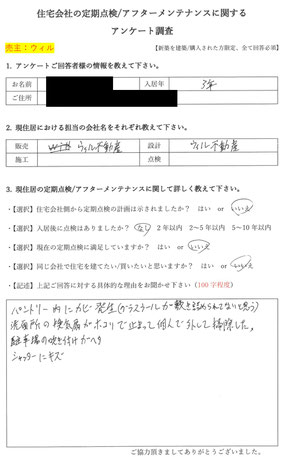 住宅会社の定期点検/アフターメンテナンスに関する
アンケート調査
売主：ウィル
【新築を建築/購入された方限定、全て回答必須】
1. アンケートご回答者様の情報を教えて下さい。
お名前 入居年 3年
ご住所
2. 現住居における担当の会社名をそれぞれ教えて下さい。
販売 ウィル不動産 設計 ウィル不動産
施工 点検
3. 現住居の定期点検/アフターメンテナンスに関して詳しく教えて下さい。
・【選択】住宅会社側から定期点検の計画は示されましたか？ はい or いいえ
・【選択】入居後に点検はありましたか？ なし 2年以内 2～5年以内 5～10年以内
・【選択】現在の定期点検に満足していますか？ はい or いいえ
・【選択】同じ会社で住宅を建てたい/買いたいと思いますか？ はい or いいえ
・【記述】上記ご回答に対する具体的な理由をお聞かせ下さい（100字程度）
パントリー内にカビ発生(グラスウールが敷き詰められてないと思う)
洗面所の換気扇がホコリで止まって個人で外して掃除した。
駐車場の吹き付けがハゲ
シャッターにキズ
ご協力頂きましてありがとうございました。